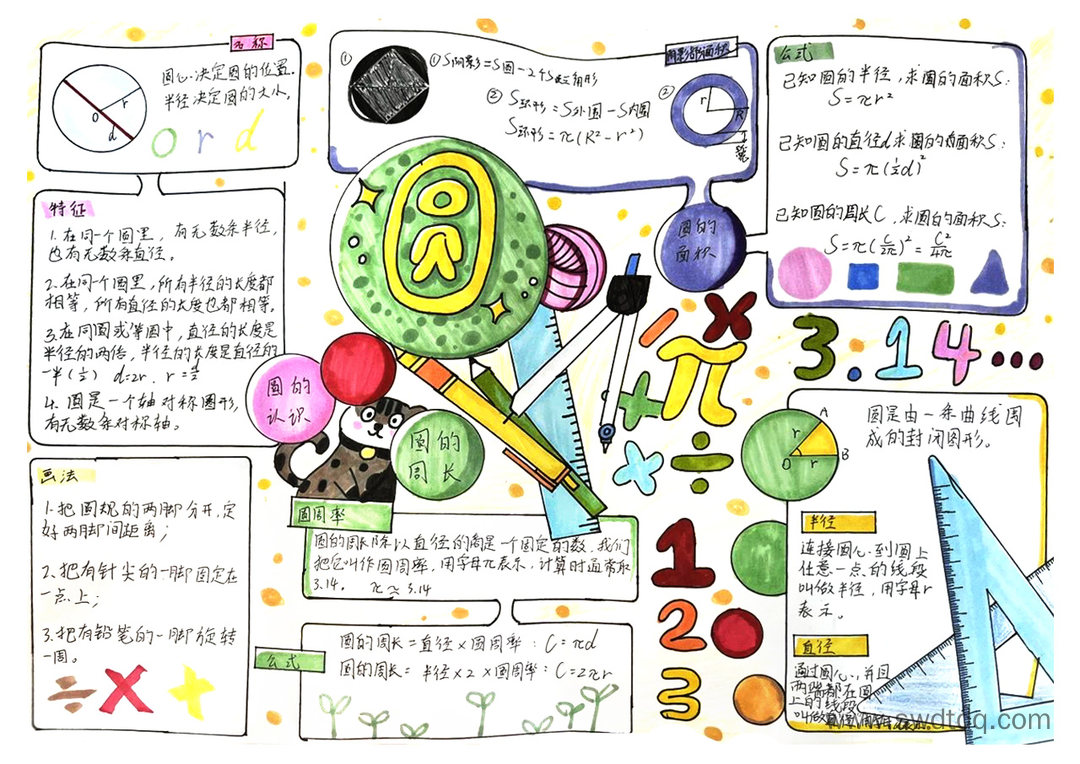 名称
圆心决定圆的位置.
半径决定圆的大小.
r
O
d
O r d
特征
1.在同一个圆里，有无数条半径，
也有无数条直径。
2.在同一个圆里，所有半径的长度都
相等，所有直径的长度也都相等。
3.在同圆或等圆中，直径的长度是
半径的两倍，半径的长度是直径的
一半(½) d=2r. r=d/2
4. 圆是一个轴对称图形，
有无数条对称轴。
画法
1.把圆规的两脚分开，定
好两脚间距离；
2.把有针尖的一脚固定在
一点上；
3.把有铅笔的一脚旋转
一周。
÷ × +
阴影部面积
①
①S阴影=S圆-2个S三角形
②S环形=S外圆-S内圆
S环形=π(R²-r²)
②
r
R
圆的
面积
公式
已知圆的半径，求圆的面积S:
S=πr²
已知圆的直径d求圆的面积S:
S=π(½d)²
已知圆的周长C，求圆的面积S:
S=π(C/2π)²=C²/4π
圆的
认识
圆的
周长
× π + ÷ ×
3.14…
圆周率
圆的周长除以直径的商是一个固定的数，我们
把它叫作圆周率，用字母π表示，计算时通常取
3.14。 π≈3.14
公式
圆的周长=直径×圆周率：C=πd
圆的周长=半径×2×圆周率：C=2πr
1
2
3
A
r
O r B
圆是由一条曲线围
成的封闭图形。
半径
连接圆心到圆上
任意一点的线段
叫做半径，用字母r
表示。
直径
通过圆心，并且
两端都在圆
上的线段
叫做
www.swdtqq.com